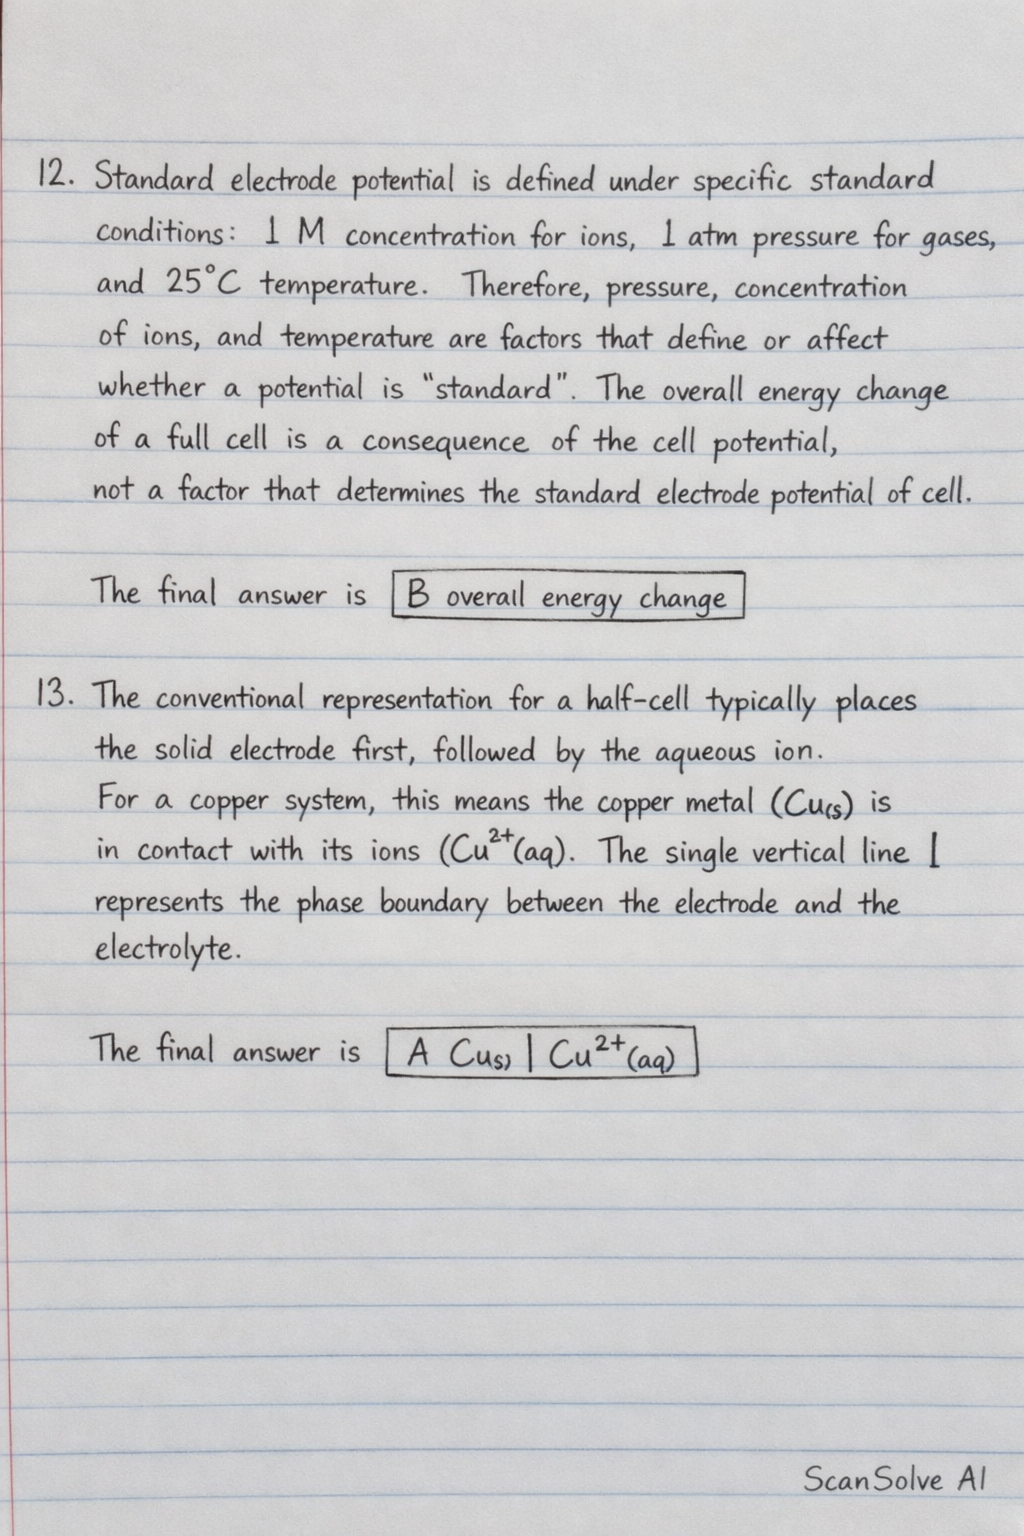 12. Standard electrode potential is defined under specific standard
conditions: 1 M concentration for ions, 1 atm pressure for gases,
and 25°C temperature. Therefore, pressure, concentration
of ions, and temperature are factors that define or affect
whether a potential is "standard". The overall energy change
of a full cell is a consequence of the cell potential,
not a factor that determines the standard electrode potential of cell.
The final answer is B overall energy change
13. The conventional representation for a half-cell typically places
the solid electrode first, followed by the aqueous ion.
For a copper system, this means the copper metal (Cu(s) is
in contact with its ions (Cu²⁺(aq). The single vertical line |
represents the phase boundary between the electrode and the
electrolyte.
The final answer is A Cus) | Cu²⁺(aq)
ScanSolve AI